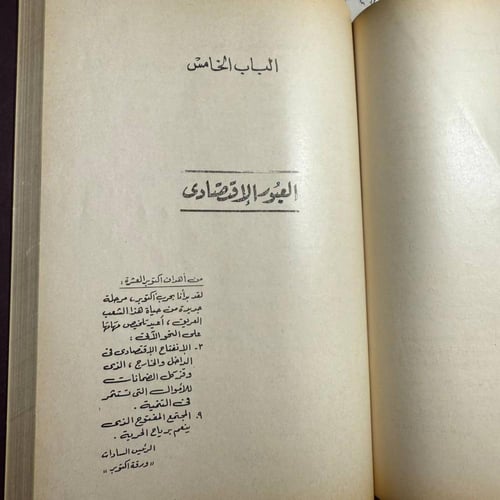 الباب الخامس
العبور الإقتصادى
من أهداف أكتوبر العشرة :
لقد بدأنا بحرب أكتوبر، مرحلة
جديدة من حياة هذا الشعب
العريق ، أعيد تلخيص مهامها
على النحو الآتى :
٣- الإنفتاح الإقتصادى فى
الداخل والخارج ، الذى
وفر كل الضمانات
للأموال التى تستثمر
فى التنمية .
٩. المجتمع المفتوح الذى
ينعم برياح الحرية .
الرئيس السادات
"ورقة أكتوبر"